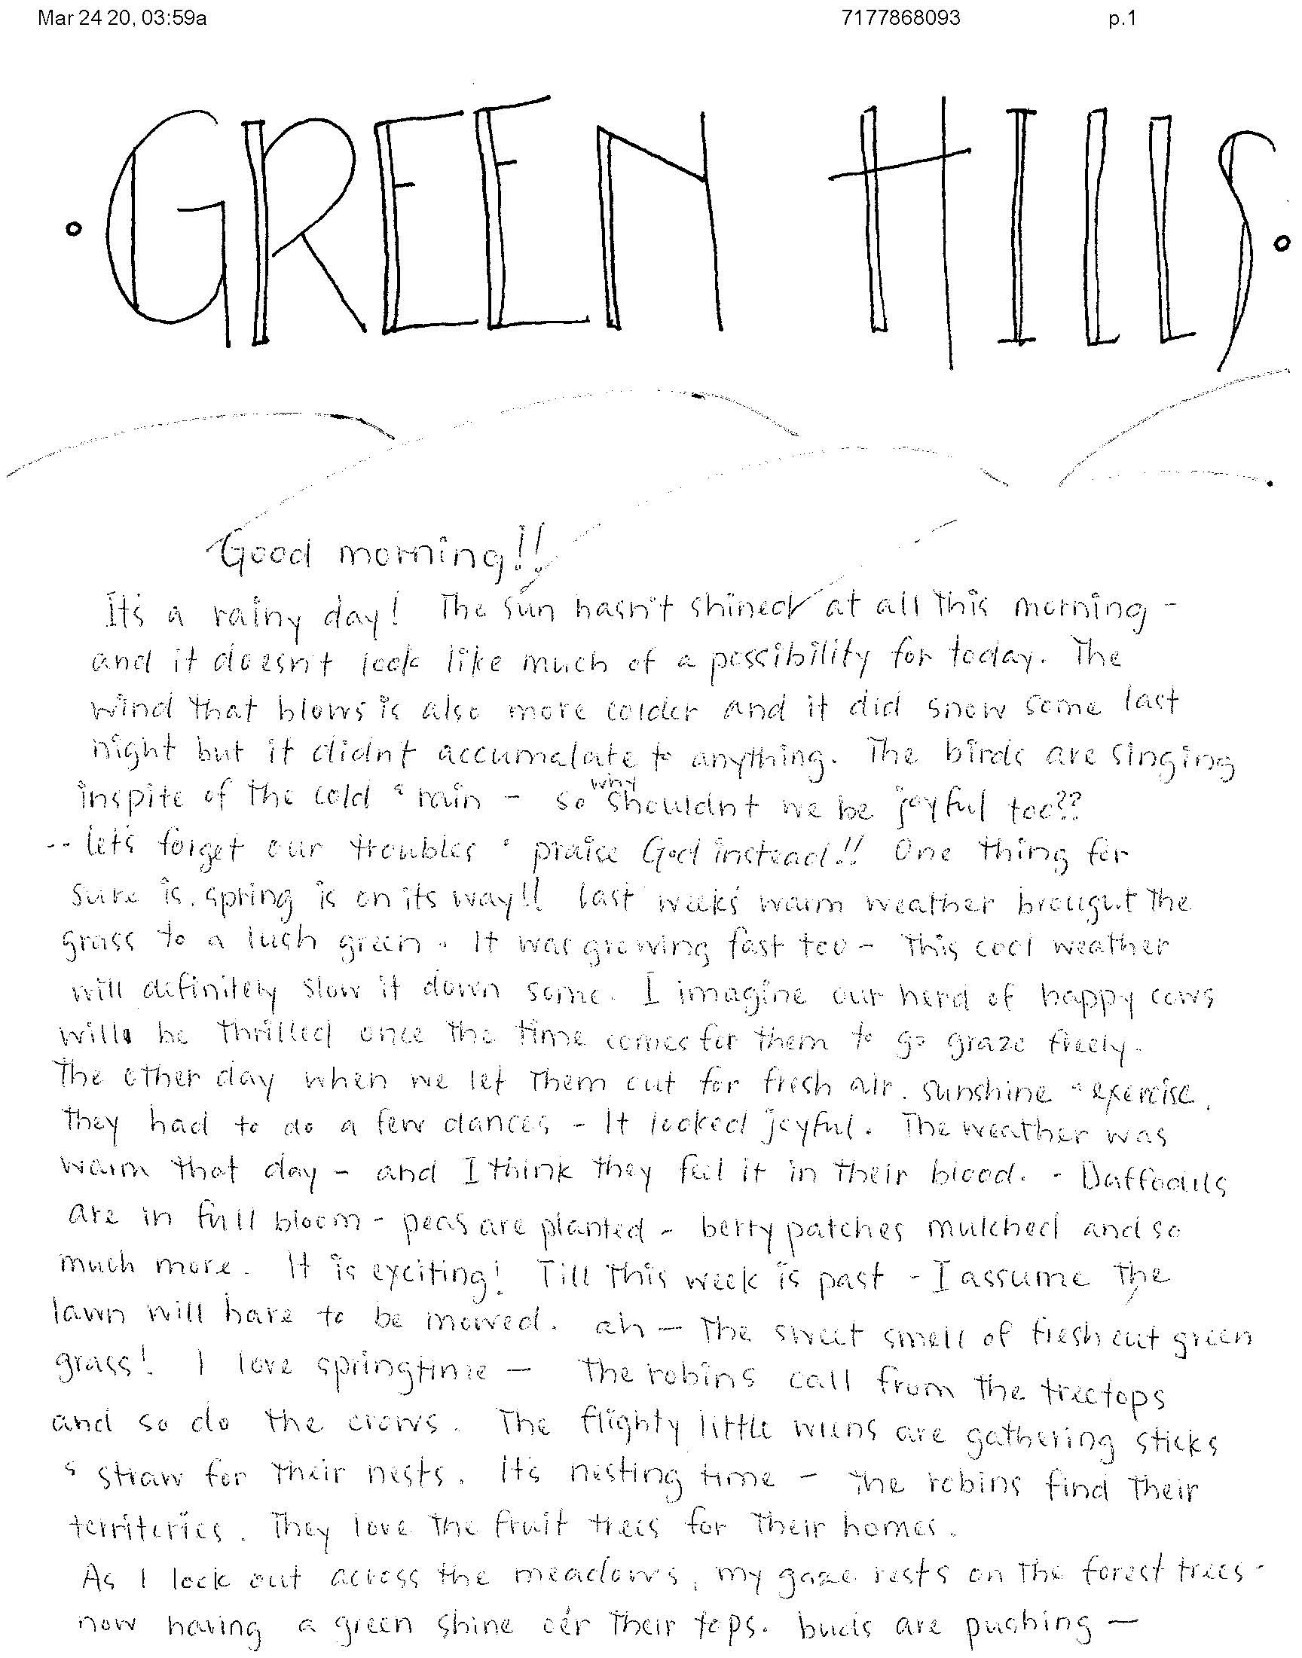 Mar 24 20, 03:59a 7177868093 p.1
• GREEN HILLS •
Good morning!!
It's a rainy day! The sun hasn't shined at all this morning -
and it doesn't look like much of a possibility for today. The
wind that blows is also more colder and it did snow some last
night but it didn't accumalate to anything. The birds are singing
inspite of the cold & rain - so why shouldn't we be joyful too??
-- let's forget our troubles & praise God instead!! One thing for
sure is, spring is on its way!! last week's warm weather brought the
grass to a lush green. It was growing fast too - This cool weather
will definitely slow it down some. I imagine our herd of happy cows
will be thrilled once the time comes for them to go graze freely.
The other day when we let them out for fresh air, sunshine & exercise,
they had to do a few dances - It looked joyful. The weather was
warm that day - and I think they feel it in their blood. - Daffodils
are in full bloom - peas are planted - berry patches mulched and so
much more. It is exciting! Till this week is past - I assume the
lawn will have to be mowed. ah — The sweet smell of fresh cut green
grass! I love springtime — The robins call from the treetops
and so do the crows. The flighty little wrens are gathering sticks
& straw for their nests. It's nesting time - The robins find their
territories. They love the fruit trees for their homes.
As I look out across the meadows, my gaze rests on the forest trees -
now having a green shine o'er their tops. buds are pushing —